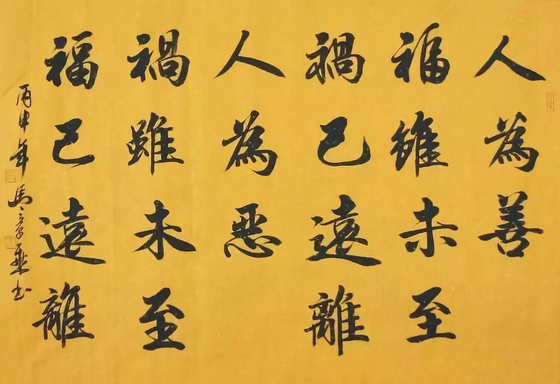 人為善
福雖未至
禍已遠離
人為惡
禍雖未至
福已遠離
丙申年馬书